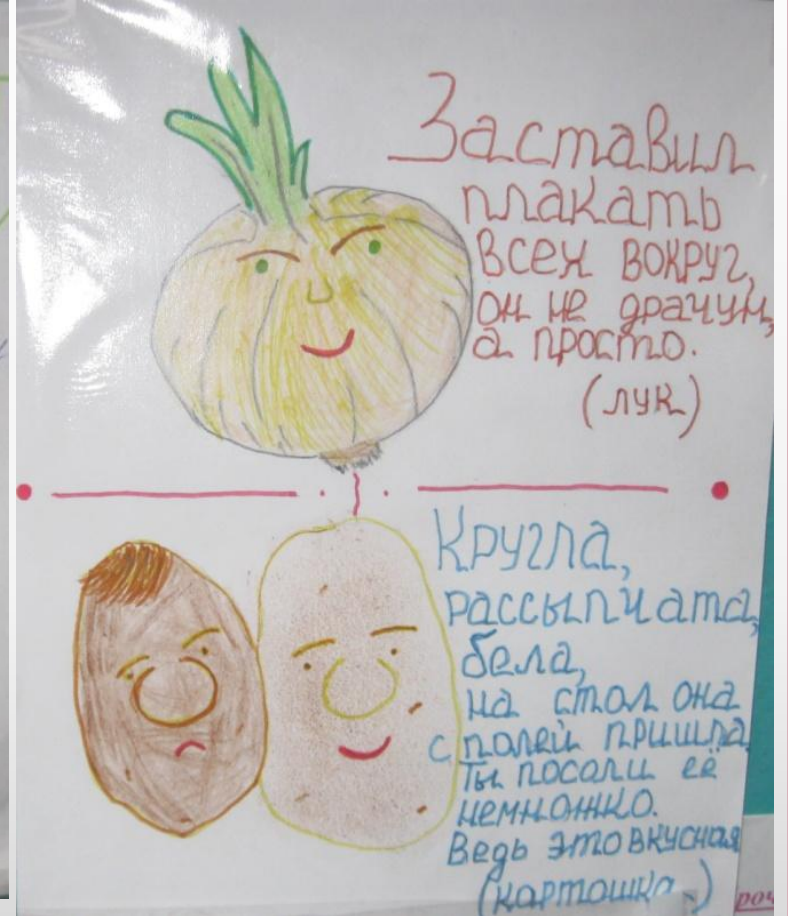 Заставил
плакать
всех вокруг,
он не драчун,
а просто.
(лук)
Кругла,
рассыпчата,
бела,
на стол она
с полей пришла.
Ты посоли её
немножко.
Ведь это вкусная
(картошка)
роч